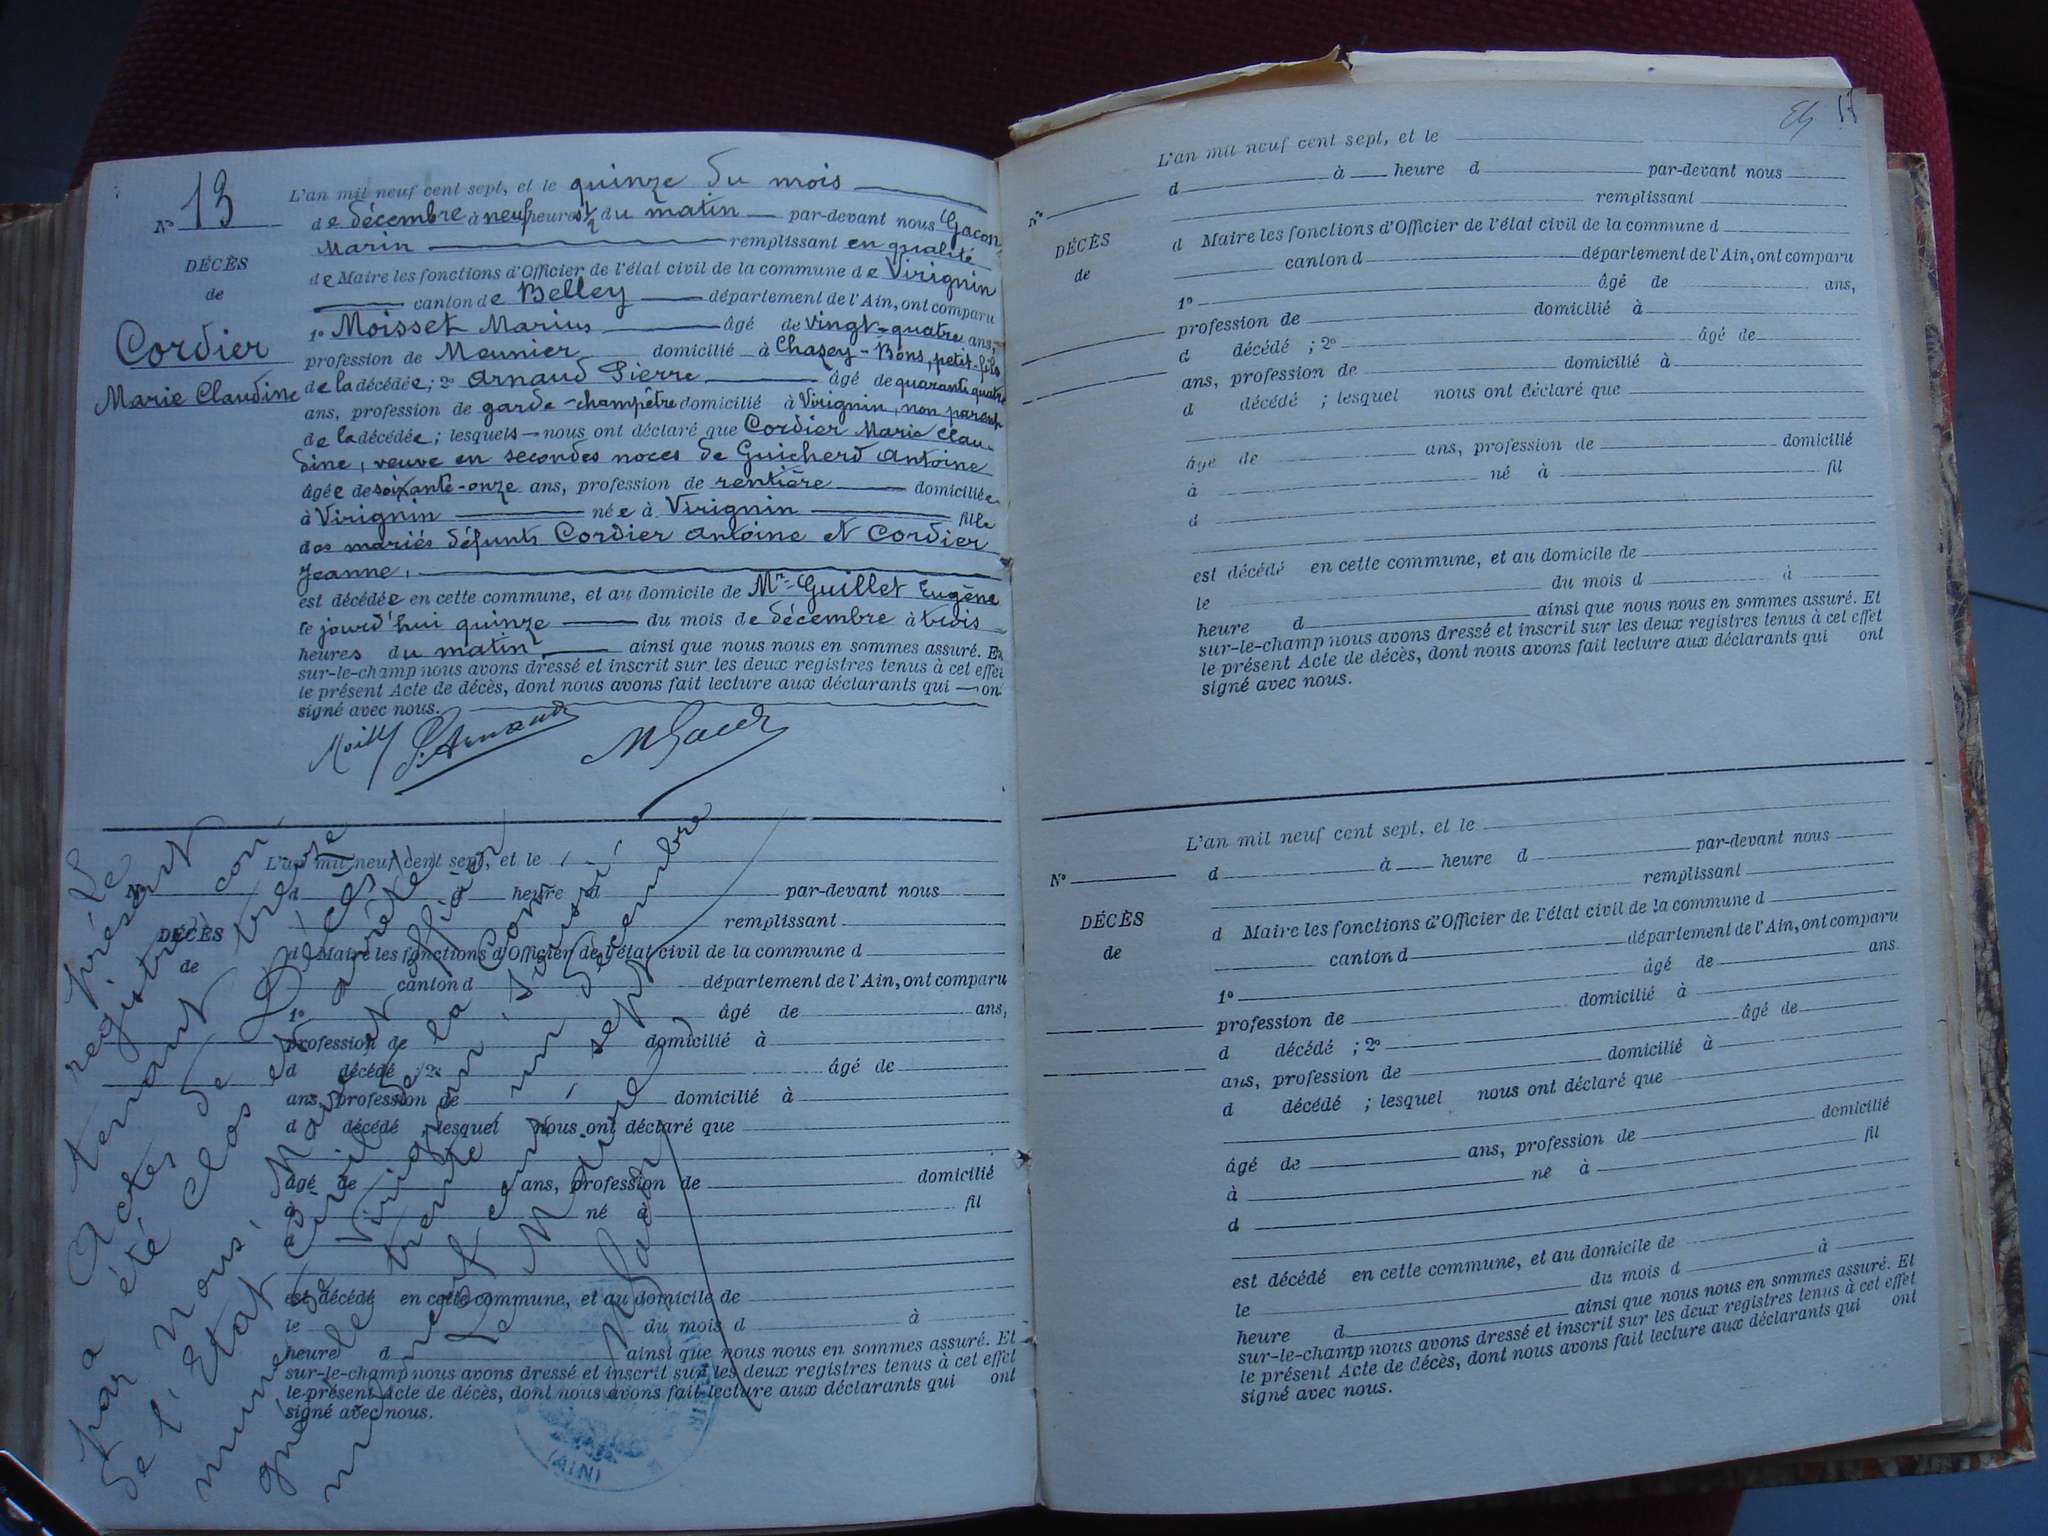 13
Nº
DÉCÈS
de
Cordier
Marie Claudine
L'an mil neuf cent sept, et le quinze du mois
de décembre à neuf heures 1/2 du matin par-devant nous Gacon
Marin remplissant en qualité
de Maire les fonctions d'Officier de l'état civil de la commune de Virignin
canton de Belley département de l'Ain, ont comparu
1º Moisset Marius âgé de vingt-quatre ans,
profession de Meunier domicilié à Chazey-Bons, petit-fils
de la décédée; 2º Arnaud Pierre âgé de quarante quatre
ans, profession de garde-champêtre domicilié à Virignin, non parent
de la décédée; lesquels nous ont déclaré que Cordier Marie Clau-
dine, veuve en secondes noces de Guicherd Antoine
âgée de soixante-onze ans, profession de rentière domiciliée
à Virignin née à Virignin fille
des mariés défunts Cordier Antoine et Cordier
Jeanne,
est décédée en cette commune, et au domicile de Mr Guillet Eugène
le jourd'hui quinze du mois de décembre à trois
heures du matin, ainsi que nous nous en sommes assuré. Et
sur-le-champ nous avons dressé et inscrit sur les deux registres tenus à cet effet
le présent Acte de décès, dont nous avons fait lecture aux déclarants qui ont
signé avec nous.
P. Arnaud
M Gacon
Nº
DÉCÈS
de
L'an mil neuf cent sept, et le
d à heure d par-devant nous
remplissant
d Maire les fonctions d'Officier de l'état civil de la commune d
canton d département de l'Ain, ont comparu
1º âgé de ans,
profession de domicilié à
d décédé ; 2º âgé de
ans, profession de domicilié à
d décédé ; lesquel nous ont déclaré que
âgé de ans, profession de domicilié
à né à fil
d
est décédé en cette commune, et au domicile de
le du mois d à
heure d ainsi que nous nous en sommes assuré. Et
sur-le-champ nous avons dressé et inscrit sur les deux registres tenus à cet effet
le présent Acte de décès, dont nous avons fait lecture aux déclarants qui ont
signé avec nous.
Le
présent
registre con-
tenant treize
Actes de Décès
a été clos et arrêté
par nous, Maire et officier
de l'Etat Civil de la Com-
mune de Virignin, soussi-
gné le trente un décembre
mil neuf cent sept
Le Maire
M Gacon
(AIN)
17
L'an mil neuf cent sept, et le
Nº d à heure d par-devant nous
remplissant
DÉCÈS
de
d Maire les fonctions d'Officier de l'état civil de la commune d
canton d département de l'Ain, ont comparu
1º âgé de ans,
profession de domicilié à
d décédé ; 2º âgé de
ans, profession de domicilié à
d décédé ; lesquel nous ont déclaré que
âgé de ans, profession de domicilié
à né à fil
d
est décédé en cette commune, et au domicile de
le du mois d à
heure d ainsi que nous nous en sommes assuré. Et
sur-le-champ nous avons dressé et inscrit sur les deux registres tenus à cet effet
le présent Acte de décès, dont nous avons fait lecture aux déclarants qui ont
signé avec nous.
L'an mil neuf cent sept, et le
Nº d à heure d par-devant nous
remplissant
DÉCÈS
de
d Maire les fonctions d'Officier de l'état civil de la commune d
canton d département de l'Ain, ont comparu
1º âgé de ans.
profession de domicilié à
d décédé ; 2º âgé de
ans, profession de domicilié à
d décédé ; lesquel nous ont déclaré que
âgé de ans, profession de domicilié
à né à fil
d
est décédé en cette commune, et au domicile de
le du mois d à
heure d ainsi que nous nous en sommes assuré. Et
sur-le-champ nous avons dressé et inscrit sur les deux registres tenus à cet effet
le présent Acte de décès, dont nous avons fait lecture aux déclarants qui ont
signé avec nous.